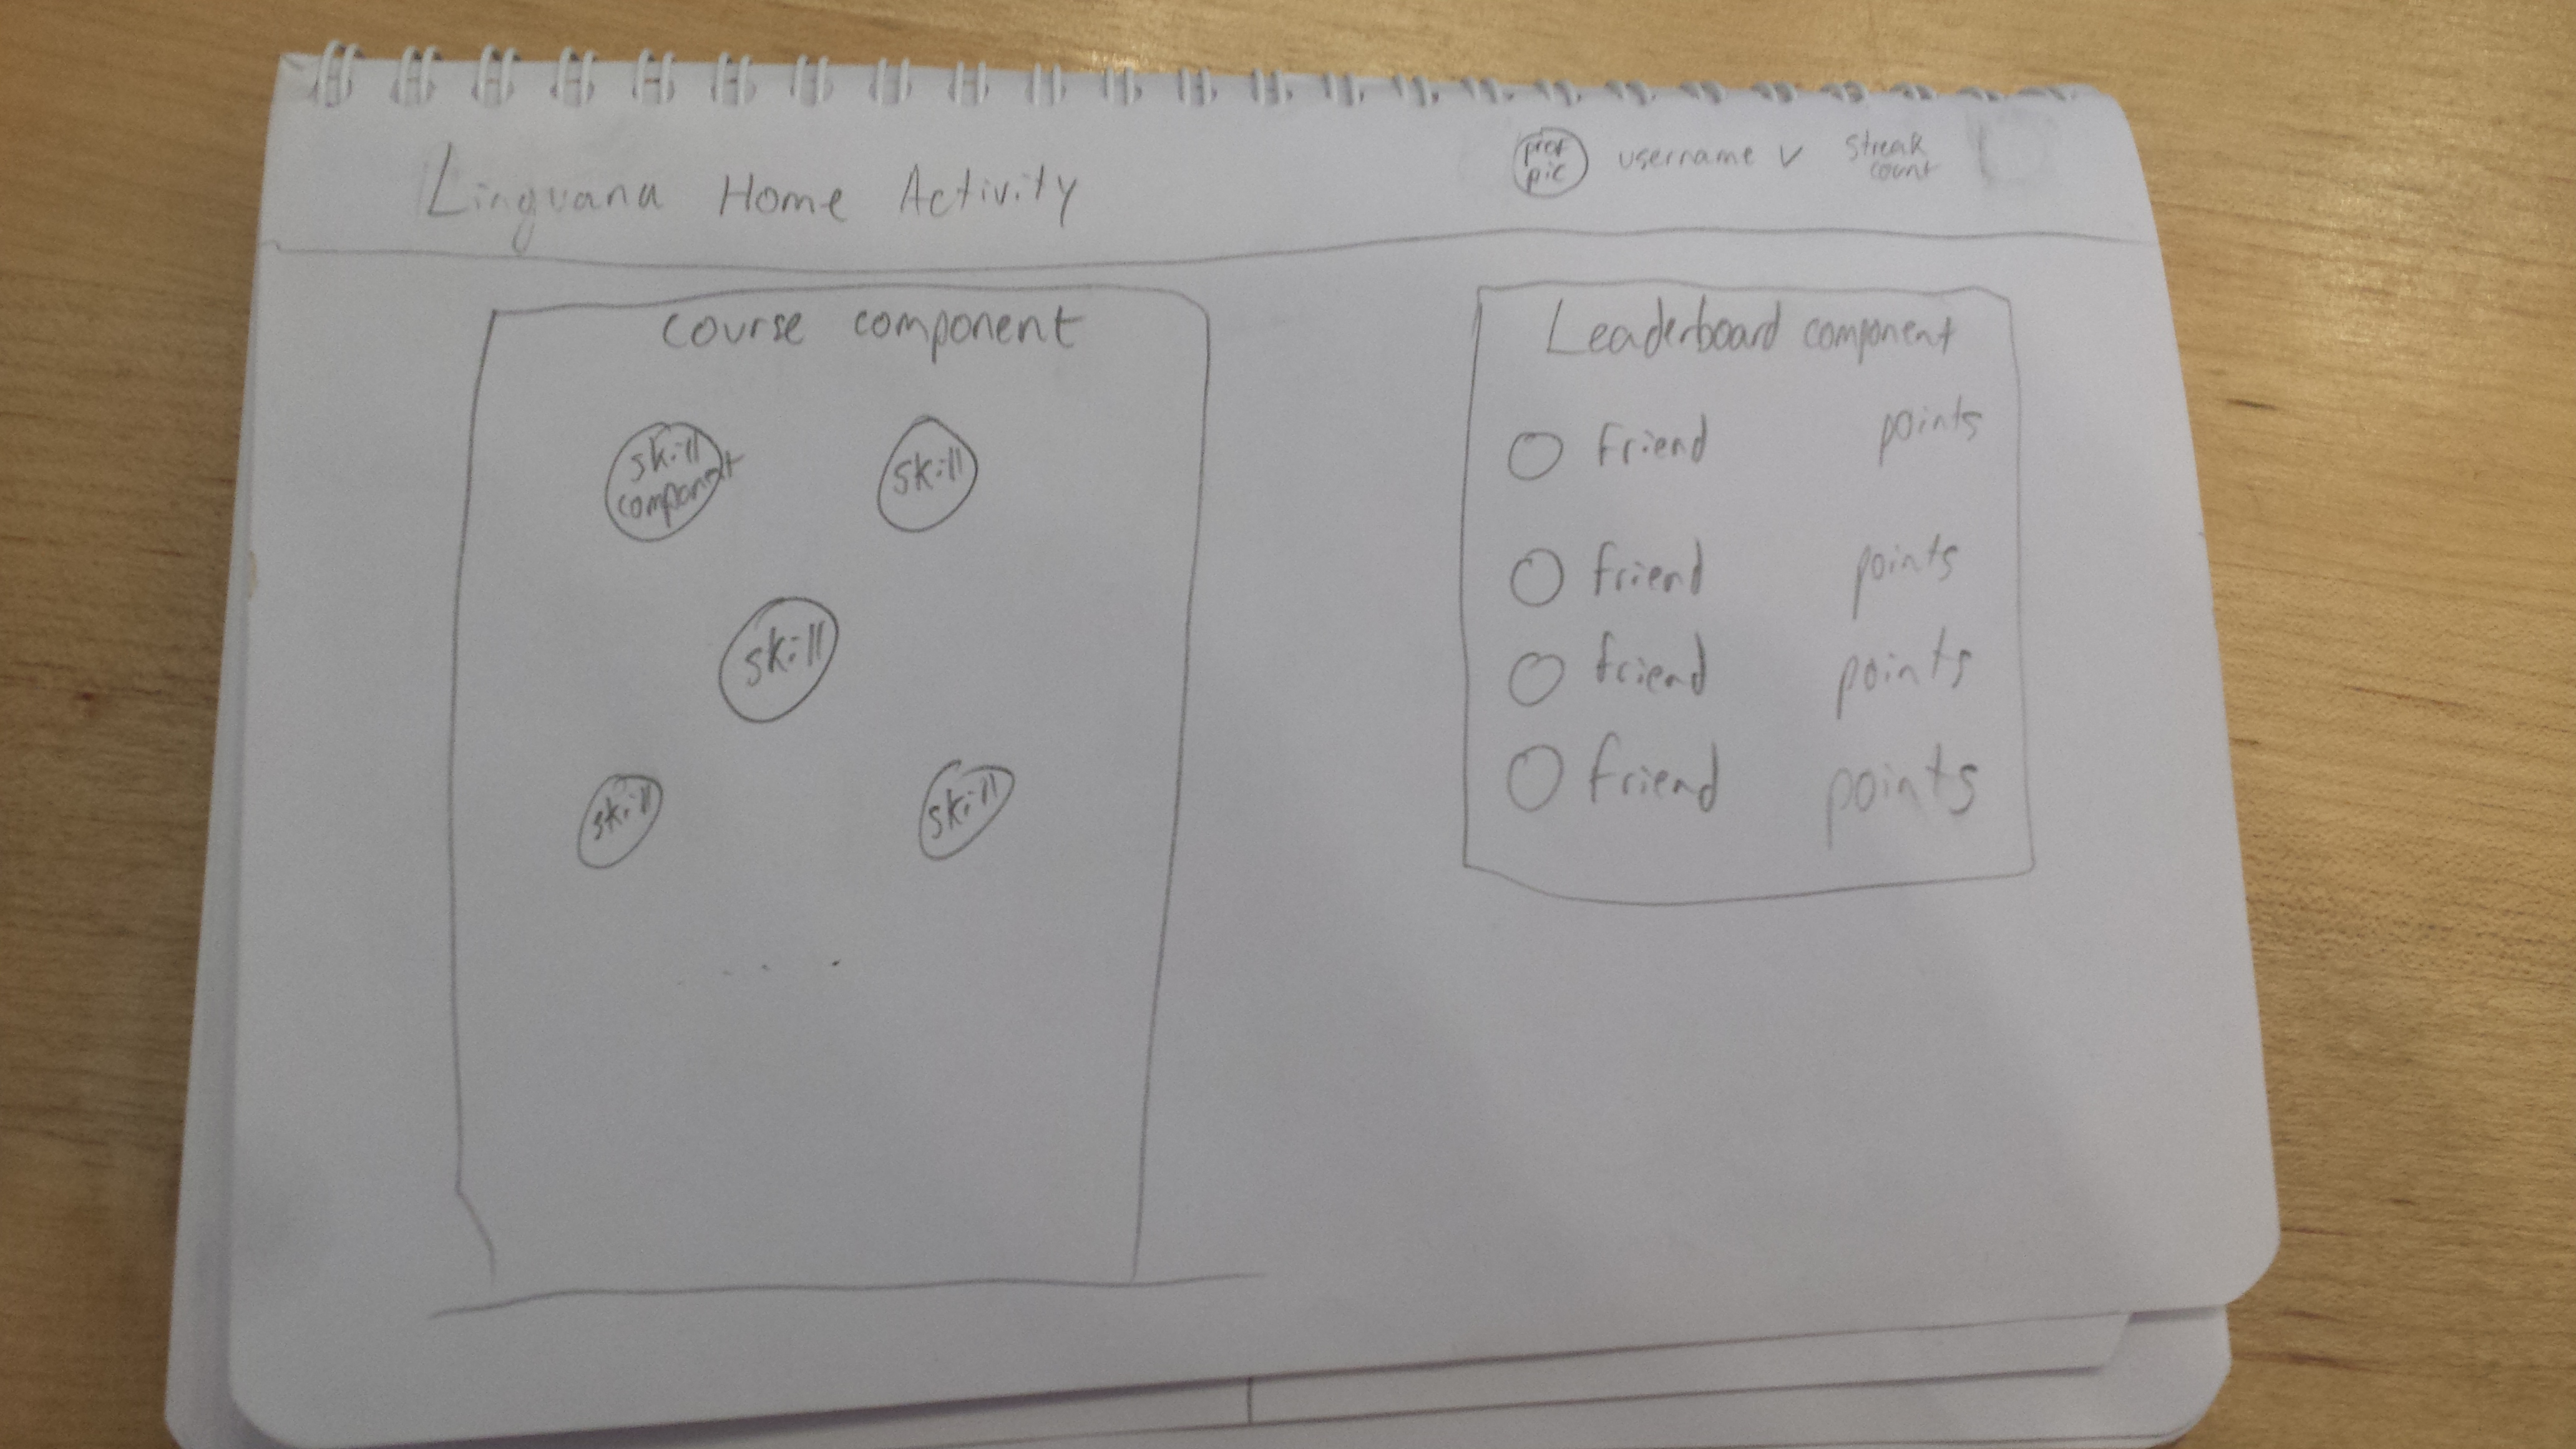 Linguana Home Activity
prof
pic
username v
streak
count
course component
skill
component
skill
skill
skill
skill
....
Leaderboard component
friend points
friend points
friend points
friend points